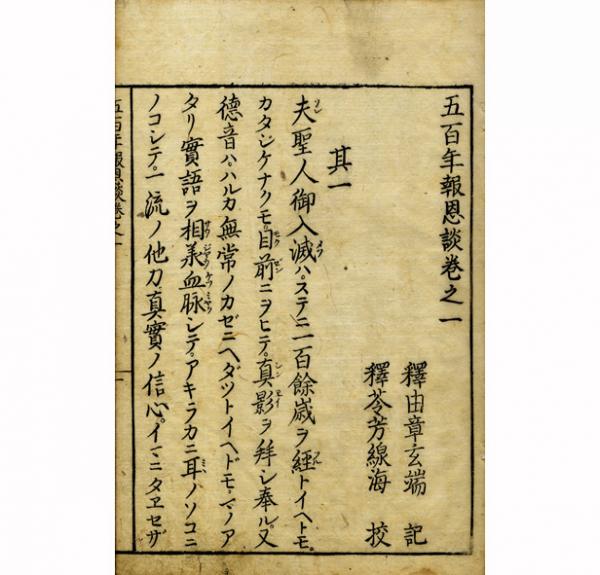 五百年報恩談巻之一
釋由章玄端 記
釋苓芳線海 校
其一
夫聖人御入滅ハ。ステニ一百餘歳ヲ經トイヘトモ。
カタジケナクモ。目前ニヲヒテ。真影ヲ拜シ奉ル。又
德音ハ。ハルカ無常ノカゼニヘダツトイヘドモ。マノア
タリ實語ヲ相承血脉シテ。アキラカニ耳ノソコニ
ノコシテ。一流ノ他力真實ノ信心。イマニタヱセザ
五百年報恩談巻之一
一